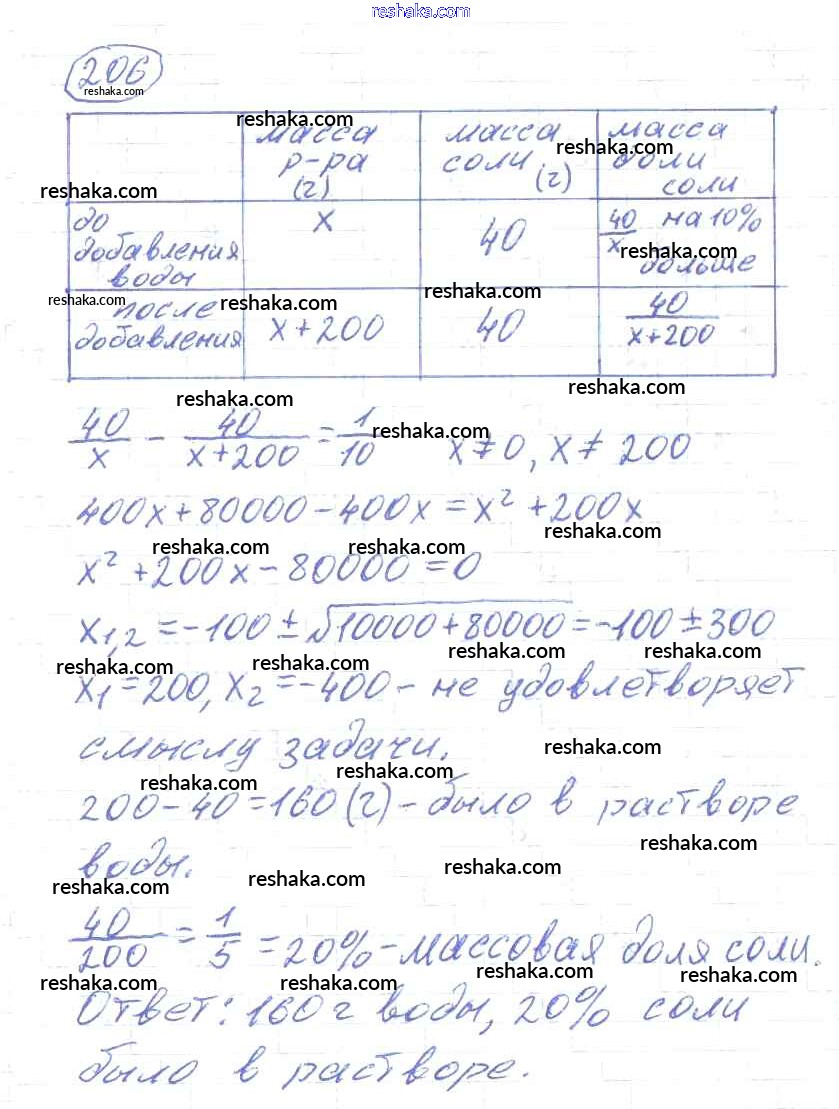 reshaka.com
206
reshaka.com
масса р-ра (г)
reshaka.com
масса соли (г)
масса доли соли
reshaka.com
reshaka.com
до добавления воды
x
40
40/x на 10% больше
reshaka.com
reshaka.com
reshaka.com
reshaka.com
после добавления
x+200
40
40/(x+200)
reshaka.com
reshaka.com
reshaka.com
40/x - 40/(x+200) = 1/10 x≠0, x≠ 200
400x+80000-400x=x²+200x
reshaka.com
reshaka.com reshaka.com
x²+200x-80000=0
x1,2=-100±√10000+80000=-100±300
reshaka.com reshaka.com reshaka.com reshaka.com
x1=200, x2=-400 - не удовлетворяет
смыслу задачи.
reshaka.com
reshaka.com reshaka.com
200-40=160(г) - было в растворе
reshaka.com
воды.
reshaka.com reshaka.com reshaka.com
40/200=1/5=20% - массовая доля соли.
reshaka.com reshaka.com reshaka.com reshaka.com
Ответ: 160 г воды, 20% соли
было в растворе.